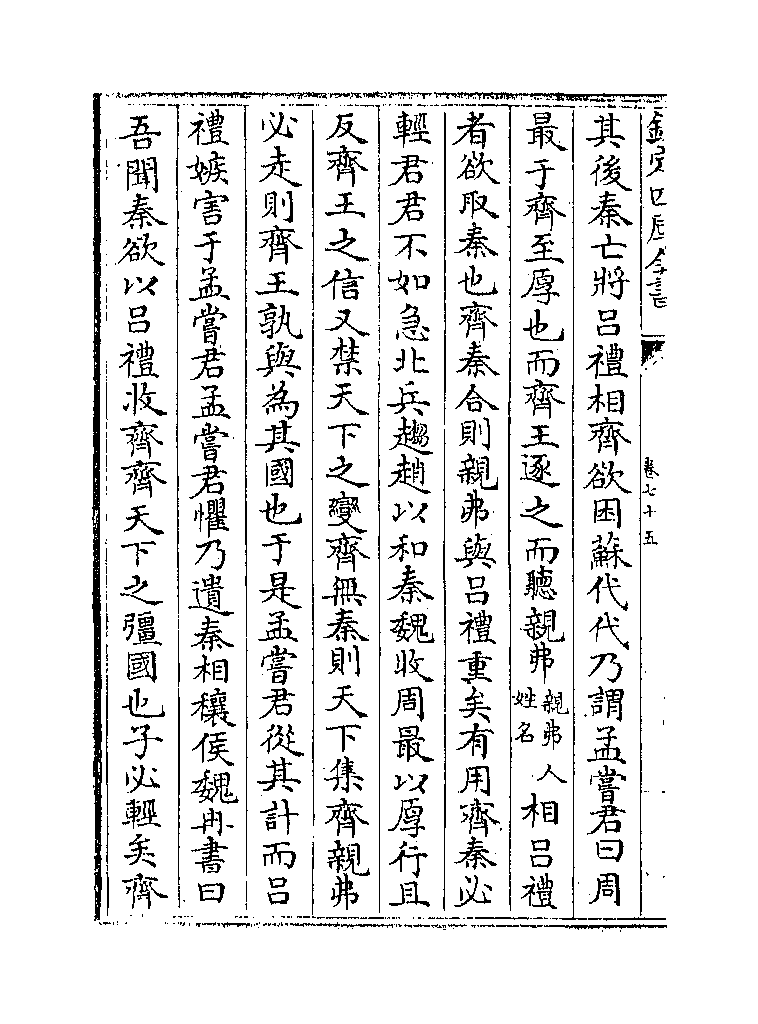 欽定四庫全書
卷七十五
其後秦亡將呂禮相齊欲困蘇代代乃謂孟嘗君曰周
最于齊至厚也而齊王逐之而聽親弗親弗人姓名相呂禮
者欲取秦也齊秦合則親弗與呂禮重矣有用齊秦必
輕君君不如急北兵趨趙以和秦魏收周最以厚行且
反齊王之信又禁天下之變齊無秦則天下集齊親弗
必走則齊王孰與為其國也于是孟嘗君從其計而呂
禮嫉害于孟嘗君孟嘗君懼乃遺秦相穰侯魏冉書曰
吾聞秦欲以呂禮收齊齊天下之彊國也子必輕矣齊